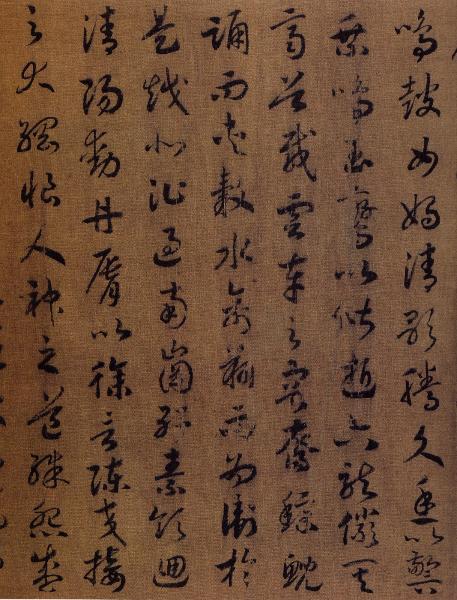 鳴鼓女媧清歌騰文魚以警
乘鳴玉鸞以偕逝六龍儼其
齊首載雲車之容裔鯨鯢
踊而夾轂水禽翔而為衛於
是越北沚過南崗紆素領迴
清陽動丹脣以徐言陳交接
之大綱恨人神之道殊怨盛